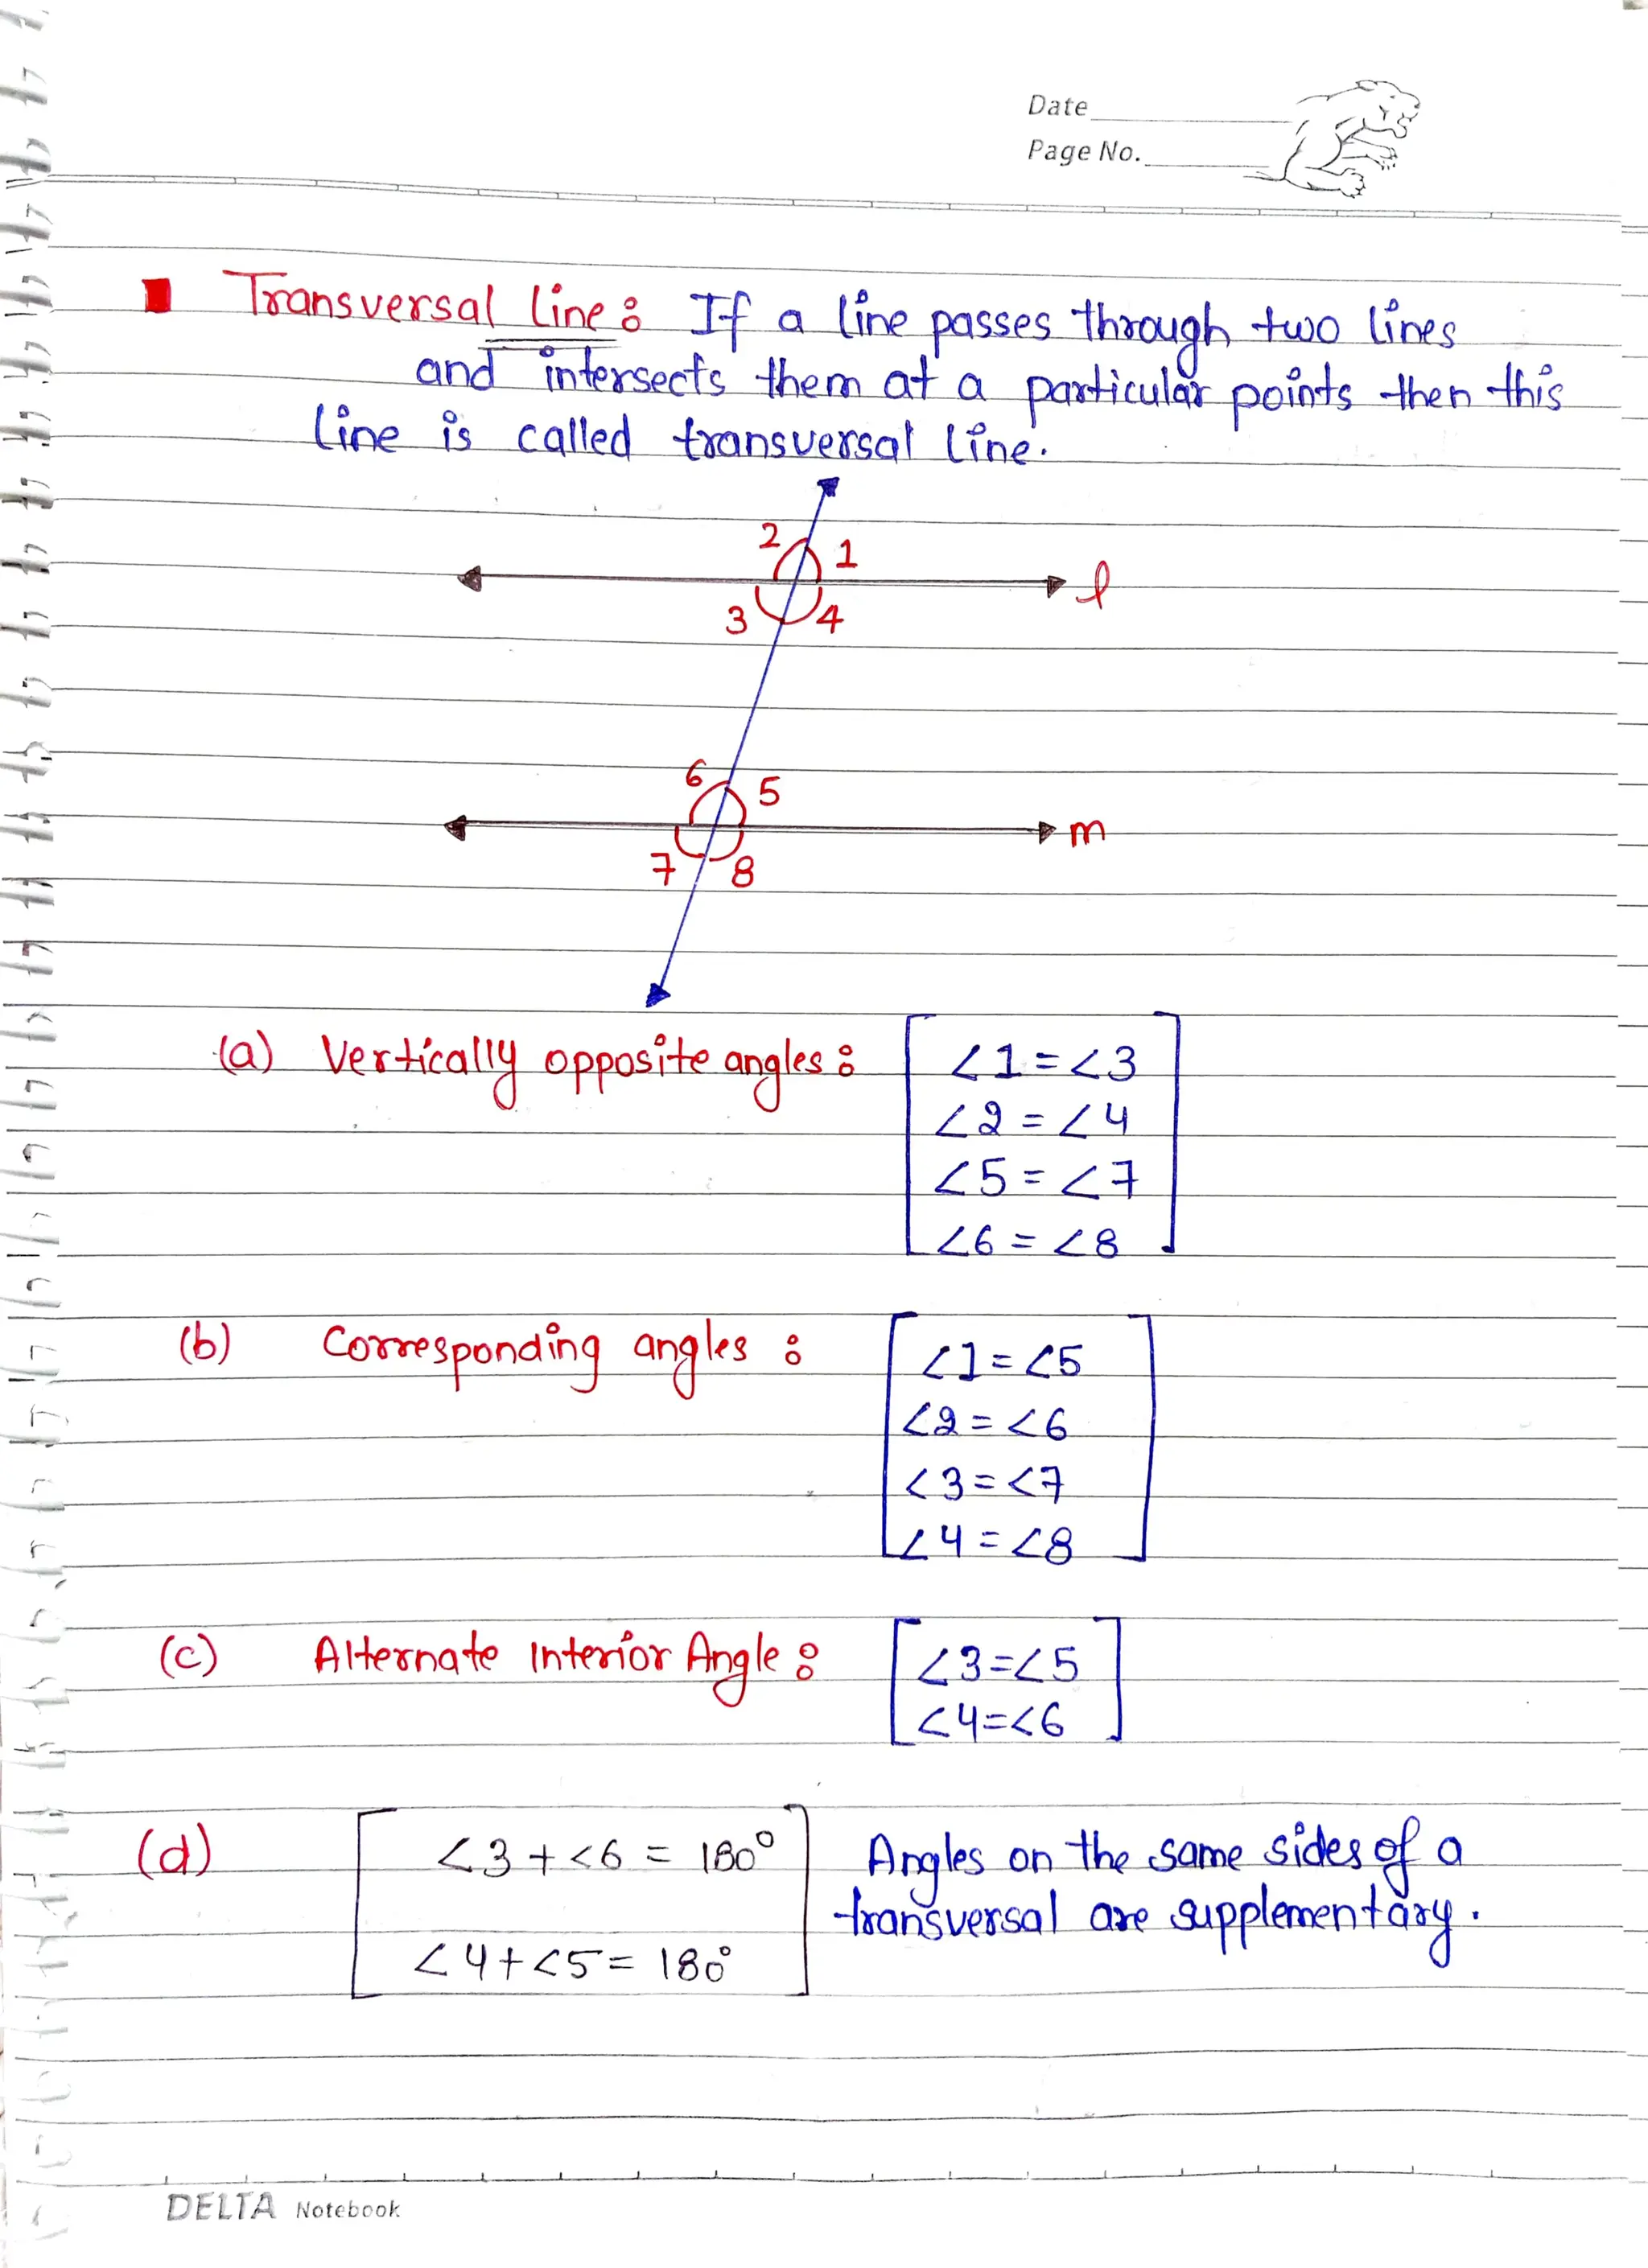 Date
Page No.
Transversal line : If a line passes through two lines
and intersects them at a particular points then this
line is called transversal line.
2 1
l
3 4
6 5
m
7 8
(a) Vertically opposite angles : ∠1 = ∠3
∠2 = ∠4
∠5 = ∠7
∠6 = ∠8
(b) Corresponding angles : ∠1 = ∠5
∠2 = ∠6
∠3 = ∠7
∠4 = ∠8
(c) Alternate Interior Angle : ∠3 = ∠5
∠4 = ∠6
(d) ∠3 + ∠6 = 180° Angles on the same sides of a
transversal are supplementary.
∠4 + ∠5 = 180°
DELTA Notebook